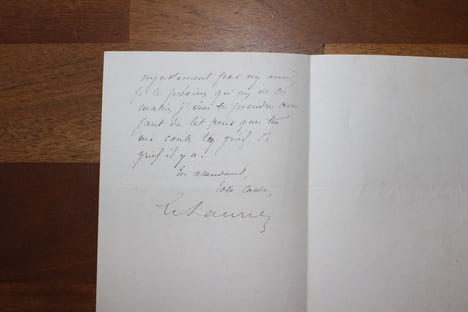 injustement par un ami
Je te préviens qu'un de ces
matins j'irai te prendre au
saut du lit pour que tu
me conte ton grief, si
grief il y a.
En attendant,